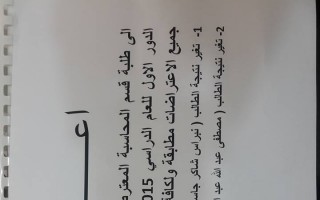 اعـــ
الى طلبة قسم المحاسبة
الدور الاول للعام الدراسي 2015
جميع الاعتراضات مطابقة ولكافة
1- تغير نتيجة الطالب ( نبراس شاكر
2- تغير نتيجة الطالب ( مصطفى عبد الله عبد